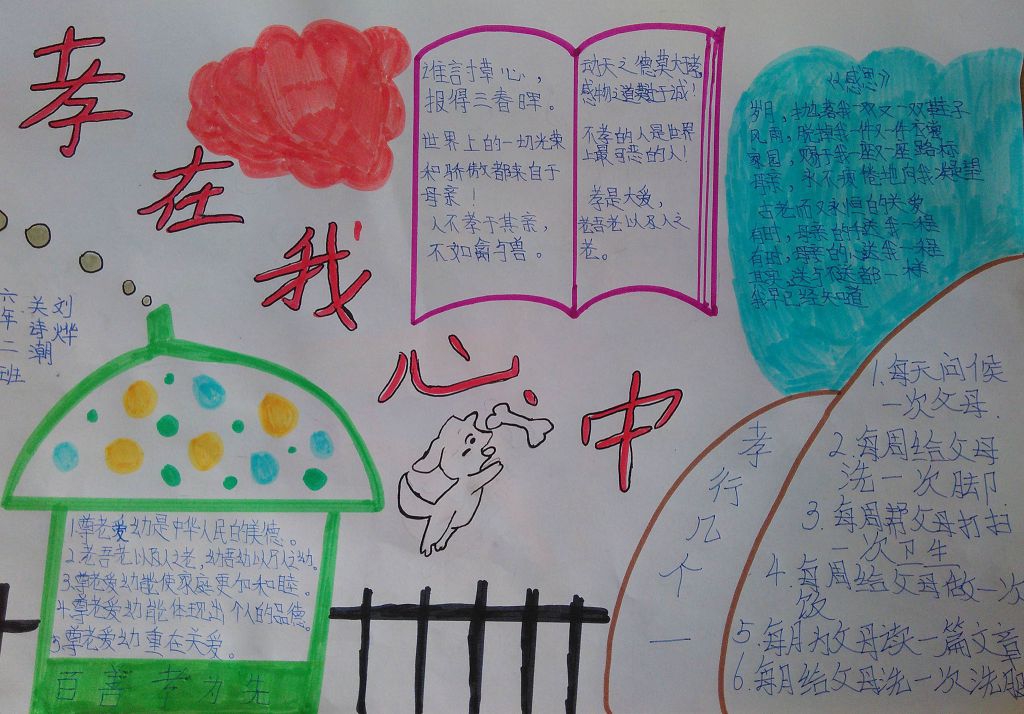 孝
在
我
心
中
谁言寸草心，
报得三春晖。
世界上的一切光荣
和骄傲都来自于
母亲！
人不孝于其亲，
不如禽与兽。
动天之德莫大
感物之道莫过于诚！
不孝的人是世界
上最可恶的人！
孝是大爱，
老吾老以及人之
老。
《感恩》
岁月，抛落我一双又一双鞋子
风雨，脱掉我一件又一件
家园，赐予我一座又一座路标
母亲，永不疲倦地向我凝望
古老而又永恒的关爱
有时，母亲的手送我一程
有时，母亲的心送我一程
其实，送与不送都一样
我早已经知道
刘烨
关诗潮
六年二班
1.尊老爱幼是中华人民的美德。
2.老吾老以及人之老，幼吾幼以及人之幼。
3.尊老爱幼能使家庭更加和睦。
4.尊老爱幼能体现出个人的品德。
5.尊老爱幼重在关爱。
百善孝为先
孝行几个一
1.每天问候
一次父母.
2.每周给父母
洗一次脚
3.每周帮父母打扫
一次卫生
4.每周给父母做一次
饭
5.每月为父母读一篇文章
6.每月给父母洗一次洗服